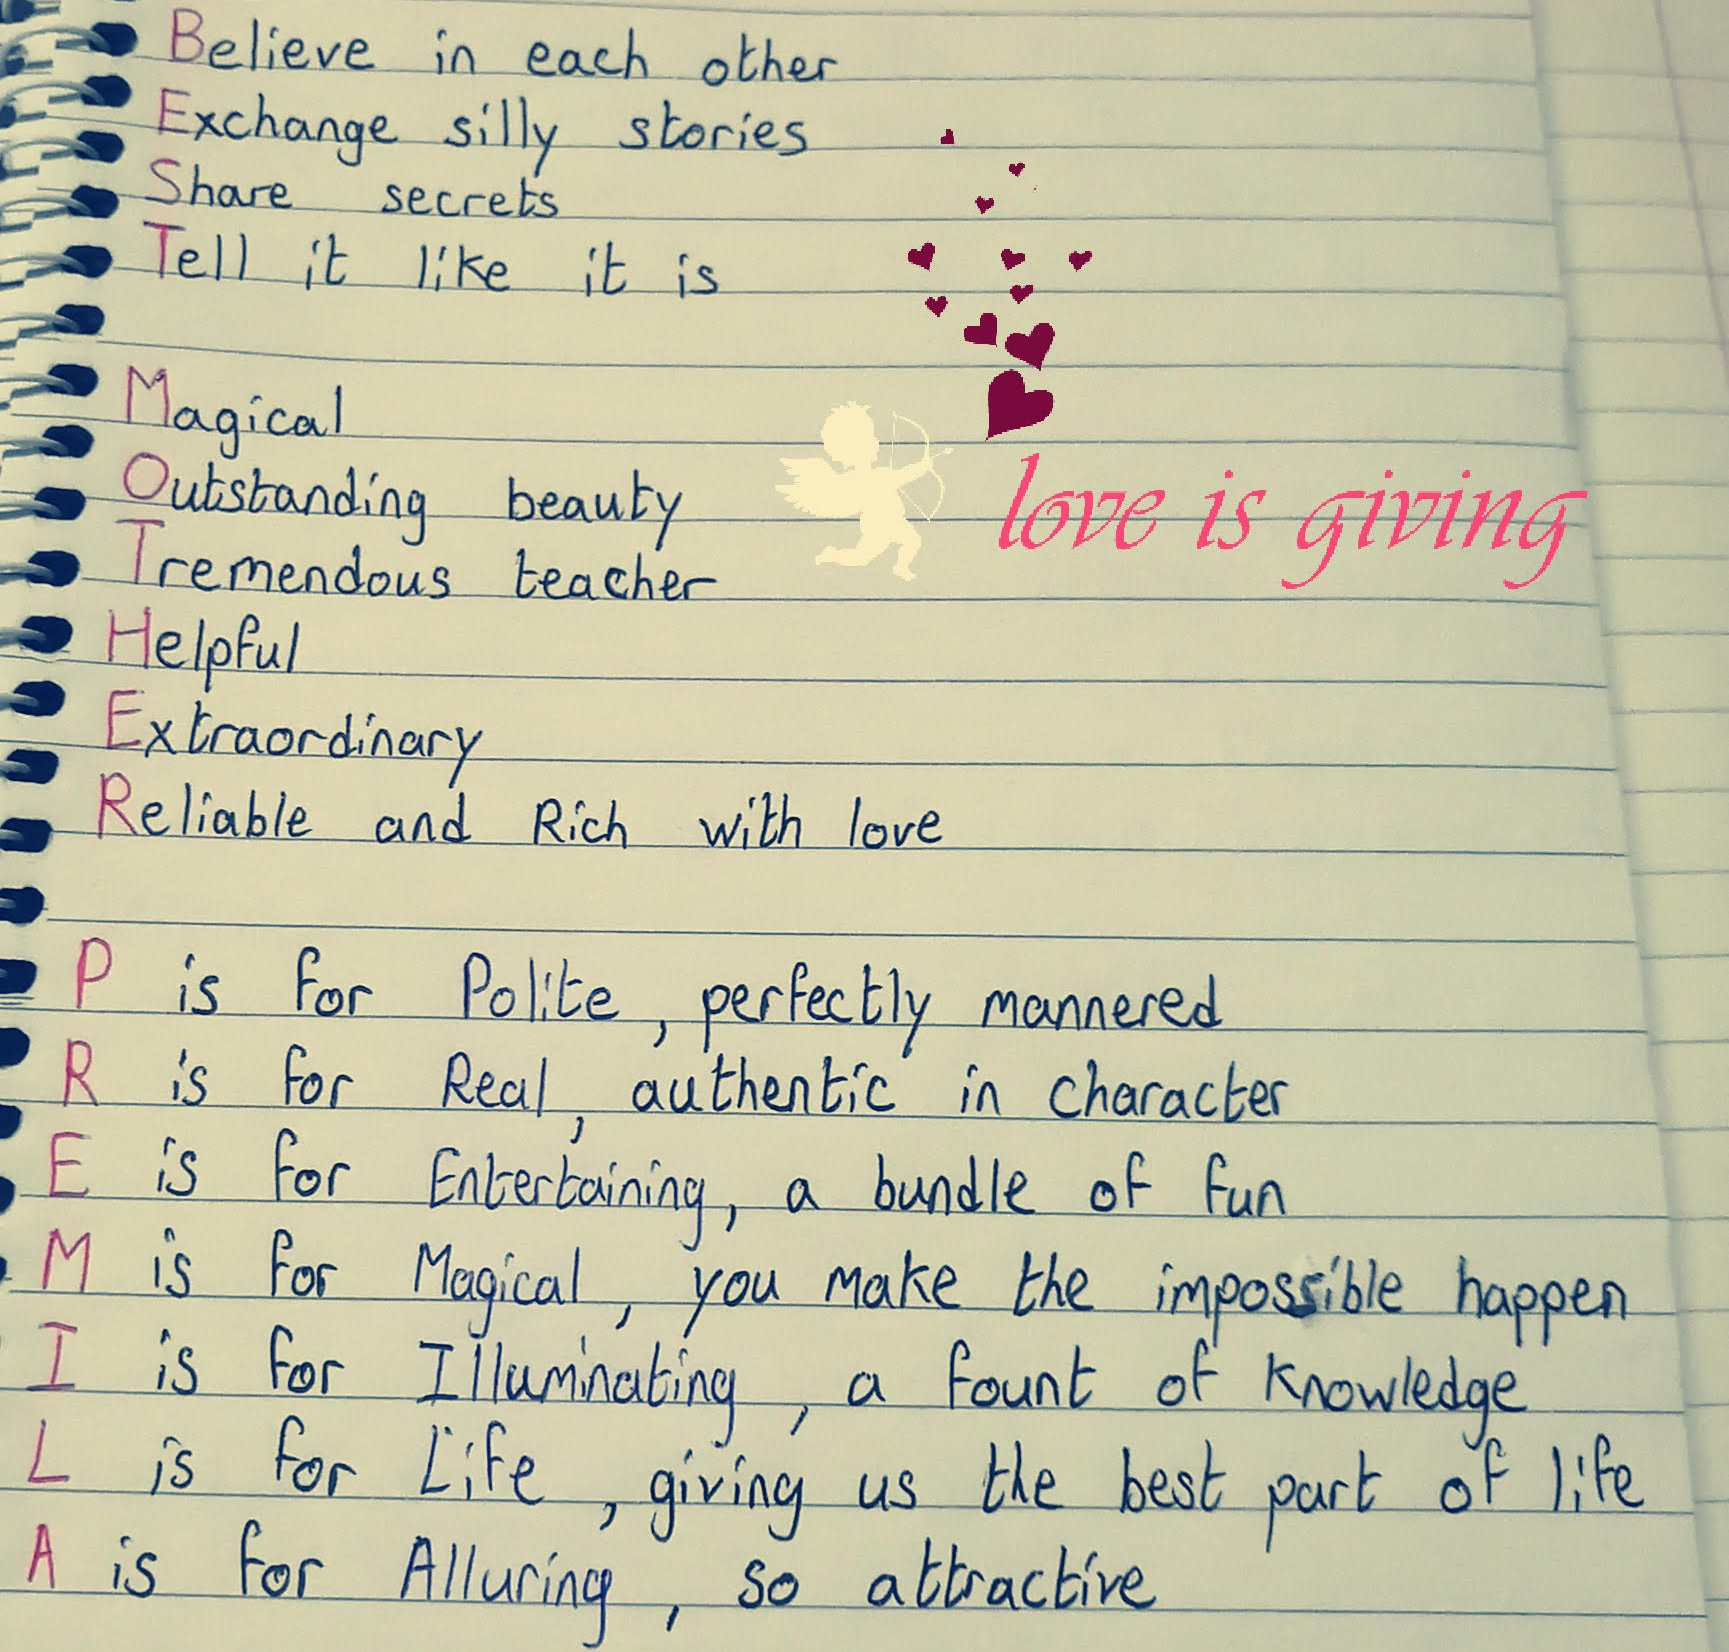 Believe in each other
Exchange silly stories
Share secrets
Tell it like it is
Magical
Outstanding beauty
love is giving
Tremendous teacher
Helpful
Extraordinary
Reliable and Rich with love
P is for Polite, perfectly mannered
R is for Real, authentic in character
E is for Entertaining, a bundle of fun
M is for Magical, you make the impossible happen
I is for Illuminating, a fount of knowledge
L is for Life, giving us the best part of life
A is for Alluring, so attractive